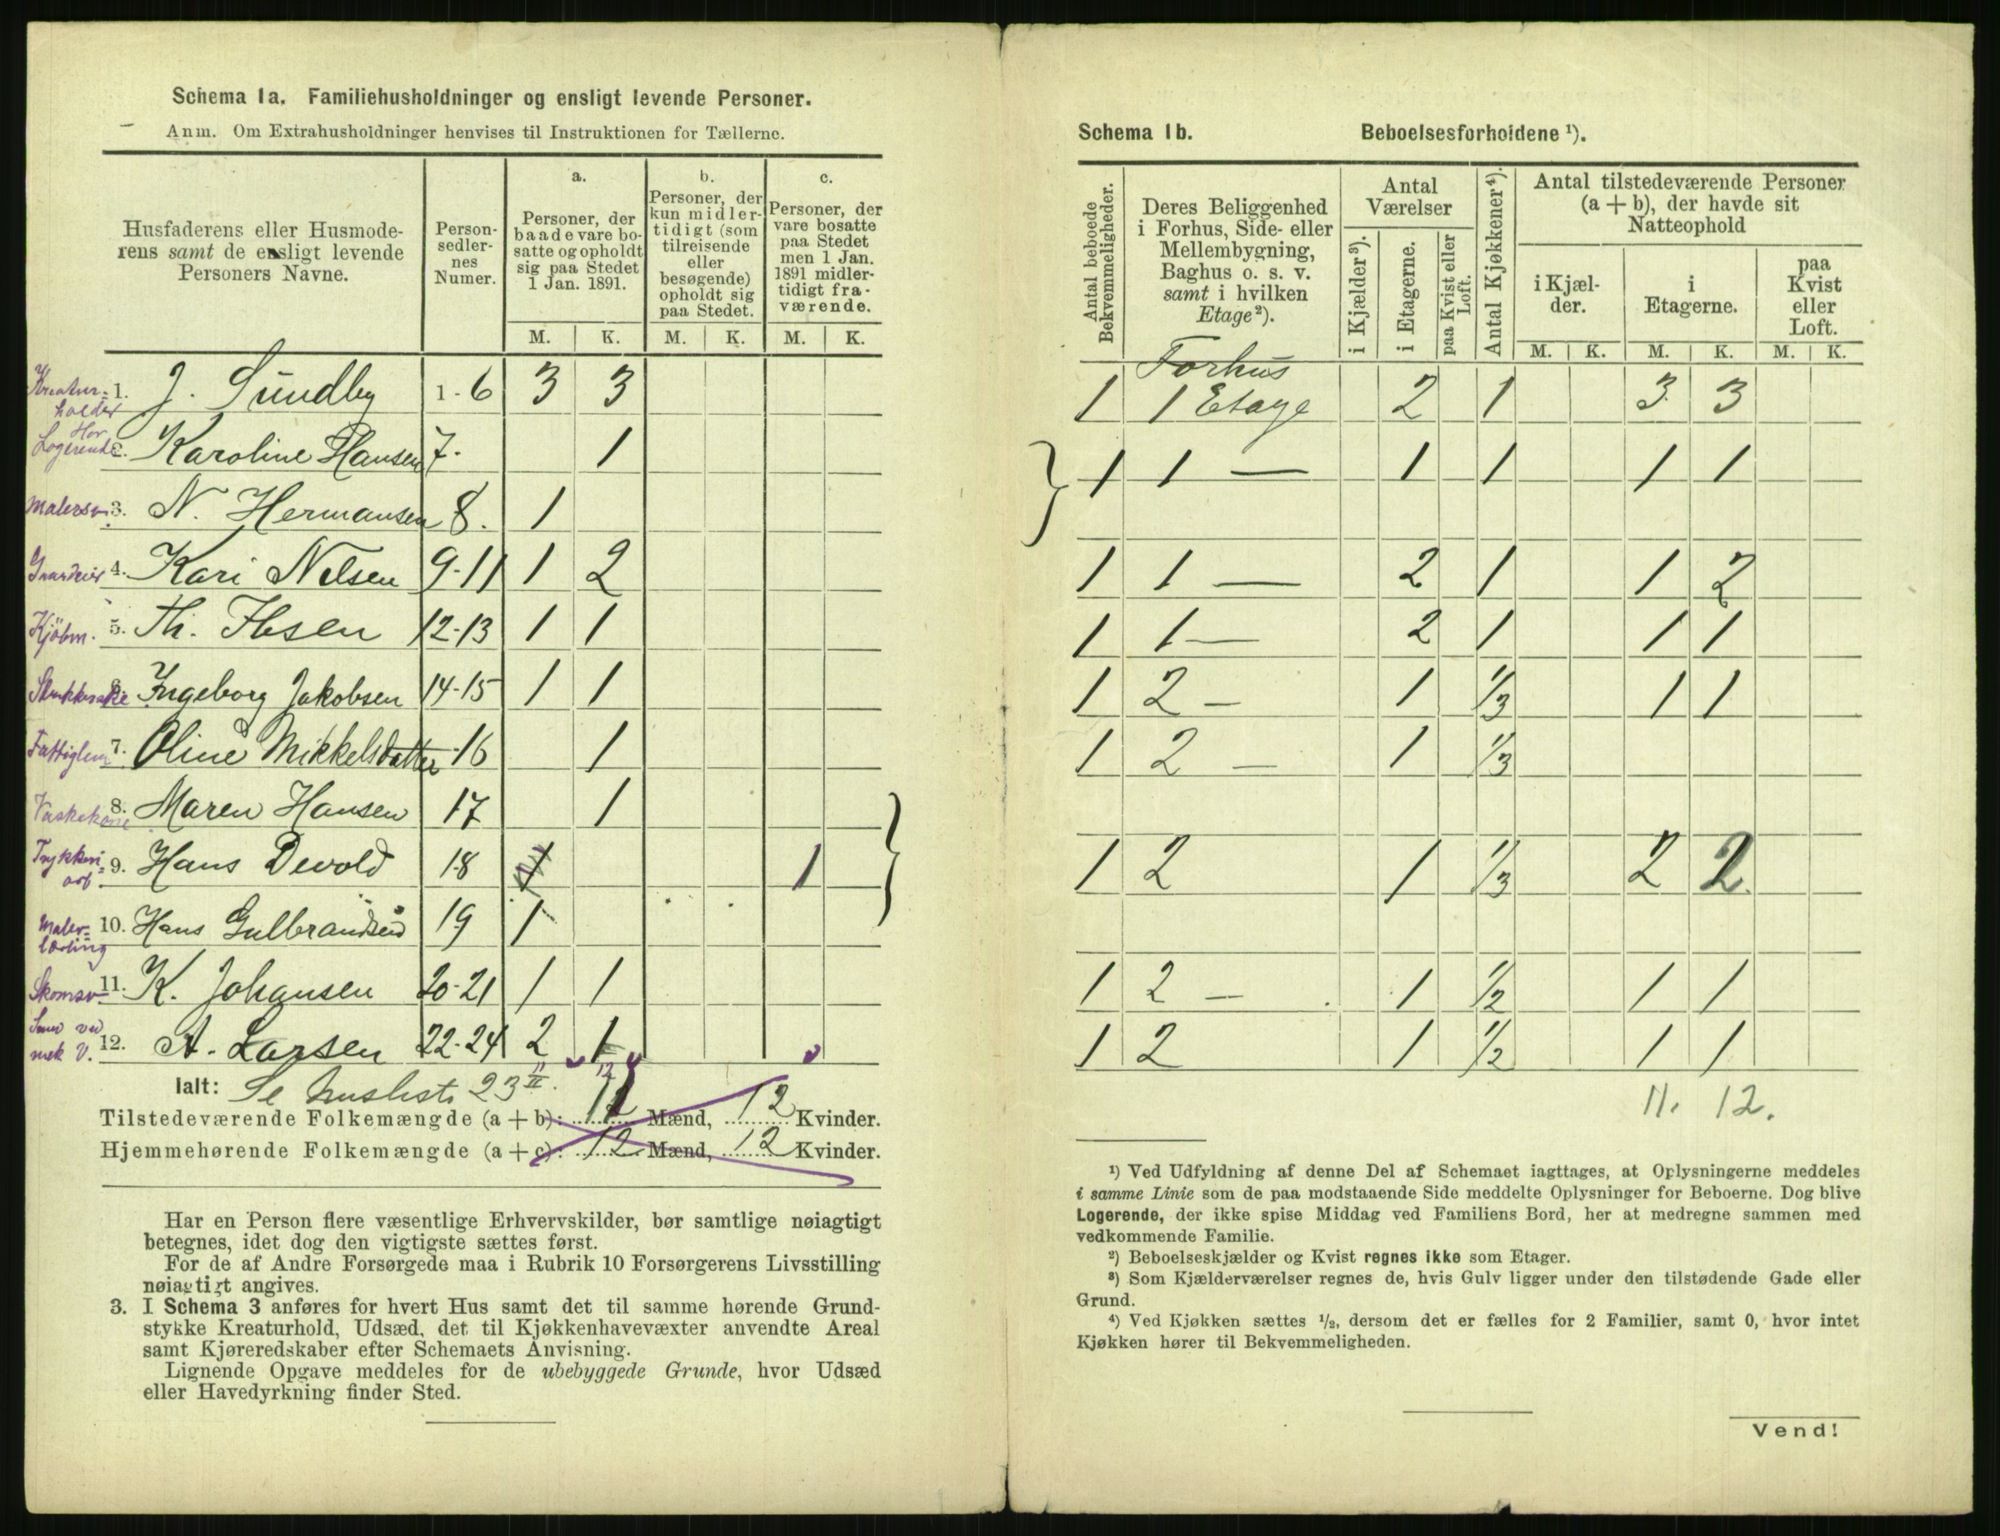 Schema 1a. Familiehusholdninger og ensligt levende Personer.
Anm. Om Extrahusholdninger henvises til Instruktionen for Tællerne.
Husfaderens eller Husmode-
rens samt de ensligt levende
Personers Navne.
Person-
sedler-
nes
Numer.
a.
Personer, der
baade vare bo-
satte og opholdt
sig paa Stedet
1 Jan. 1891.
b.
Personer, der
kun midler-
tidigt (som
tilreisende
eller
besøgende)
opholdt sig
paa Stedet.
c.
Personer, der
vare bosatte
paa Stedet
men 1 Jan.
1891 midler-
tidigt fra-
værende.
M. K. M. K. M. K.
Kreatur=
holder 1. J. Sundby 1-6 3 3
Har
Logerende 2. Karoline Hansen 7. 1
Malersv. 3. N. Hermansen 8. 1
Gaardeier 4. Kari Nilsen 9-11 1 2
Kjöbm. 5. Th. Ibsen 12-13 1 1
6. Ingeborg Jakobsen 14-15 1 1
Fattiglem 7. Oline Mikkelsdatter 16 1
Vaskekone 8. Maren Hansen 17 1
Trykkeri=
arb. 9. Hans Devold 18 1 1
Maler=
lærling 10. Hans Gulbrandsen 19 1
Skomsv. 11. K. Johansen 20-21 1 1
Smed ved
mek V. 12. A. Larsen 22-24 2 1
Ialt: Se Husliste 23 11 12
Tilstedeværende Folkemængde (a + b): 12 Mænd, 12 Kvinder.
Hjemmehørende Folkemængde (a + c): 12 Mænd, 12 Kvinder.
Har en Person flere væsentlige Erhvervskilder, bør samtlige nøiagtigt
betegnes, idet dog den vigtigste sættes først.
For de af Andre Forsørgede maa i Rubrik 10 Forsørgerens Livsstilling
nøiagtigt angives.
3. I Schema 3 anføres for hvert Hus samt det til samme hørende Grund-
stykke Kreaturhold, Udsæd, det til Kjøkkenhavevæxter anvendte Areal
samt Kjøreredskaber efter Schemaets Anvisning.
Lignende Opgave meddeles for de ubebyggede Grunde, hvor Udsæd
eller Havedyrkning finder Sted.
Schema 1b. Beboelsesforholdene ¹).
Antal beboede
Bekvemmeligheder.
Deres Beliggenhed
i Forhus, Side- eller
Mellembygning,
Baghus o. s. v.
samt i hvilken
Etage²).
Antal
Værelser
i Kjælder³).
i Etagerne.
paa Kvist eller
Loft.
Antal Kjøkkener⁴).
Antal tilstedeværende Personer
(a + b), der havde sit
Natteophold
i Kjæl-
der.
i
Etagerne.
paa
Kvist
eller
Loft.
M. K. M. K. M. K.
Forhus
1 1 Etage 2 1 3 3
1 1 — 1 1 1 1
1 1 — 2 1 1 2
1 1 — 2 1 1 1
1 2 — 1 1/3 1 1
1 2 — 1 1/3
1 2 1 1/3 2 2
1 2 — 1 1/2 1 1
1 2 1 1/2 1 1
11. 12.
¹) Ved Udfyldning af denne Del af Schemaet iagttages, at Oplysningerne meddeles
i samme Linie som de paa modstaaende Side meddelte Oplysninger for Beboerne. Dog blive
Logerende, der ikke spise Middag ved Familiens Bord, her at medregne sammen med
vedkommende Familie.
²) Beboelseskjælder og Kvist regnes ikke som Etager.
³) Som Kjælderværelser regnes de, hvis Gulv ligger under den tilstødende Gade eller
Grund.
⁴) Ved Kjøkken sættes ½, dersom det er fælles for 2 Familier, samt 0, hvor intet
Kjøkken hører til Bekvemmeligheden.
Vend!